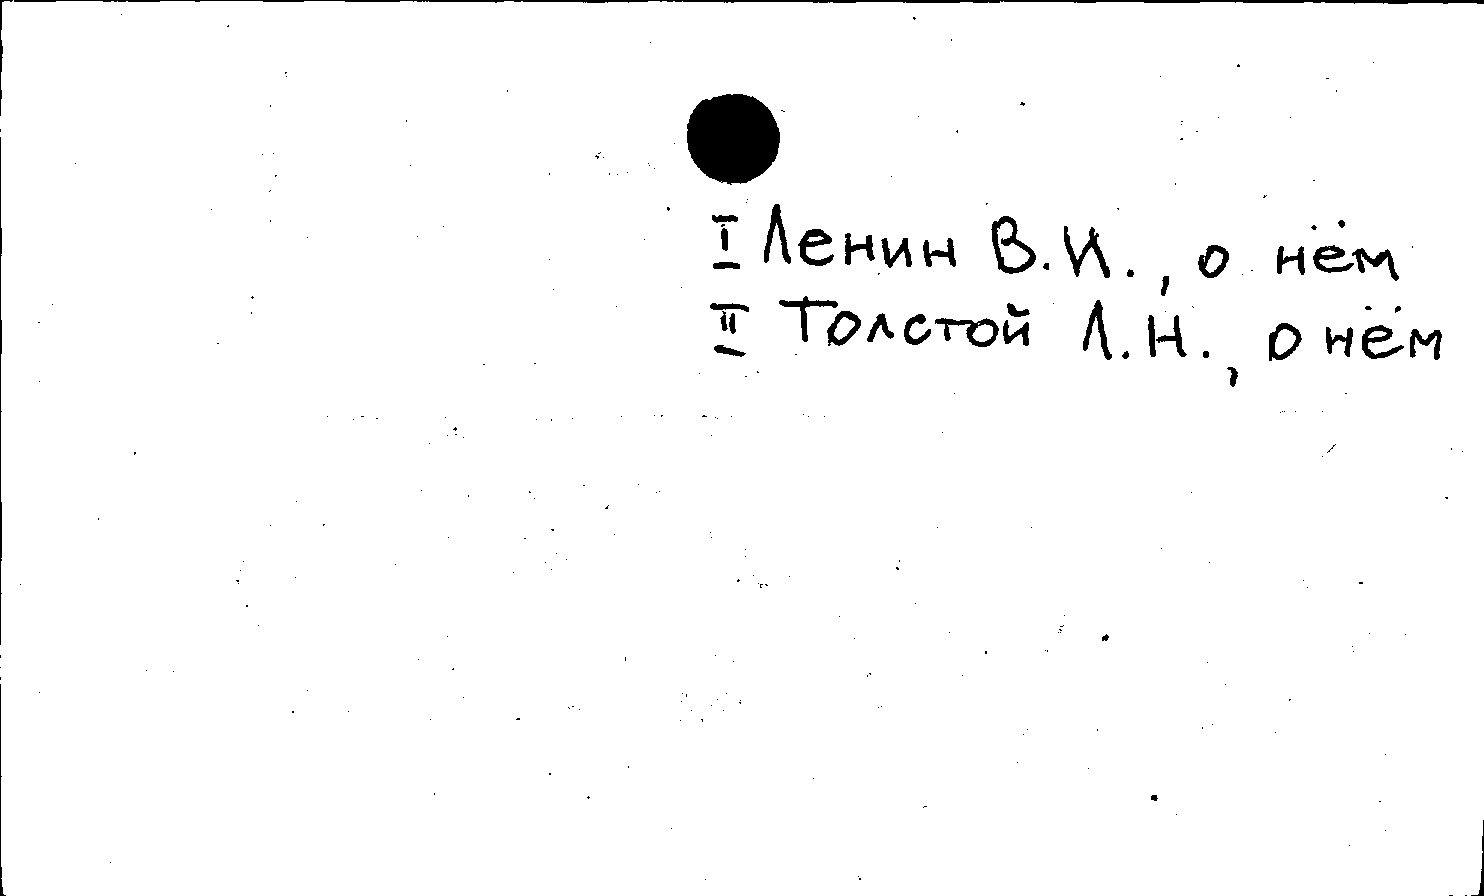 I Ленин В.И., о нём
II Толстой Л.Н., о нём